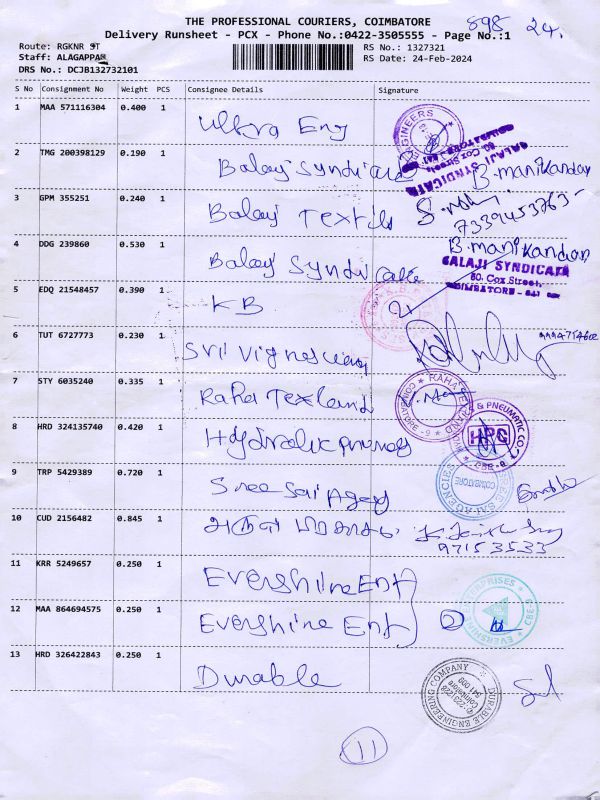 THE PROFESSIONAL COURIERS, COIMBATORE
898 24.
Delivery Runsheet - PCX - Phone No.:0422-3505555 - Page No.:1
Route: RGKNR 9T
RS No.: 1327321
Staff: ALAGAPPAN
RS Date: 24-Feb-2024
DRS No.: DCJB132732101
S No Consignment No Weight PCS Consignee Details Signature
1 MAA 571116304 0.400 1 Ultra Eng
2 TMG 200398129 0.190 1 Balaji Syndicate B.manikandan
BALAJI SYNDICATE
80, Cox Street,
3 GPM 355251 0.240 1 Balaji Textils
7339453763
4 DDG 239860 0.530 1 Balaji Syndicate B.manikandan
BALAJI SYNDICATE
80, Cox Street,
COIMBATORE - 641 001
5 EDQ 21548457 0.390 1 KB
6 TUT 6727773 0.230 1 Sri Vigneswara
7 STY 6035240 0.335 1 Raha Texland
RAHA TEXLAND
8 HRD 324135740 0.420 1 Hydralic pnumag
& PNEUMATIC CO.
HPC
CBE-9
9 TRP 5429389 0.720 1 Sree Sai Agency
SREE SAI AGENCIES
COIMBATORE
10 CUD 2156482 0.845 1
97153533
11 KRR 5249657 0.250 1 Evershine Ent
12 MAA 864694575 0.250 1 Evershine Ent
EVERSHINE ENTERPRISES
CBE-9
13 HRD 326422843 0.250 1 Durable
DURABLE ENGINEERING COMPANY
Coimbatore
641 009
11